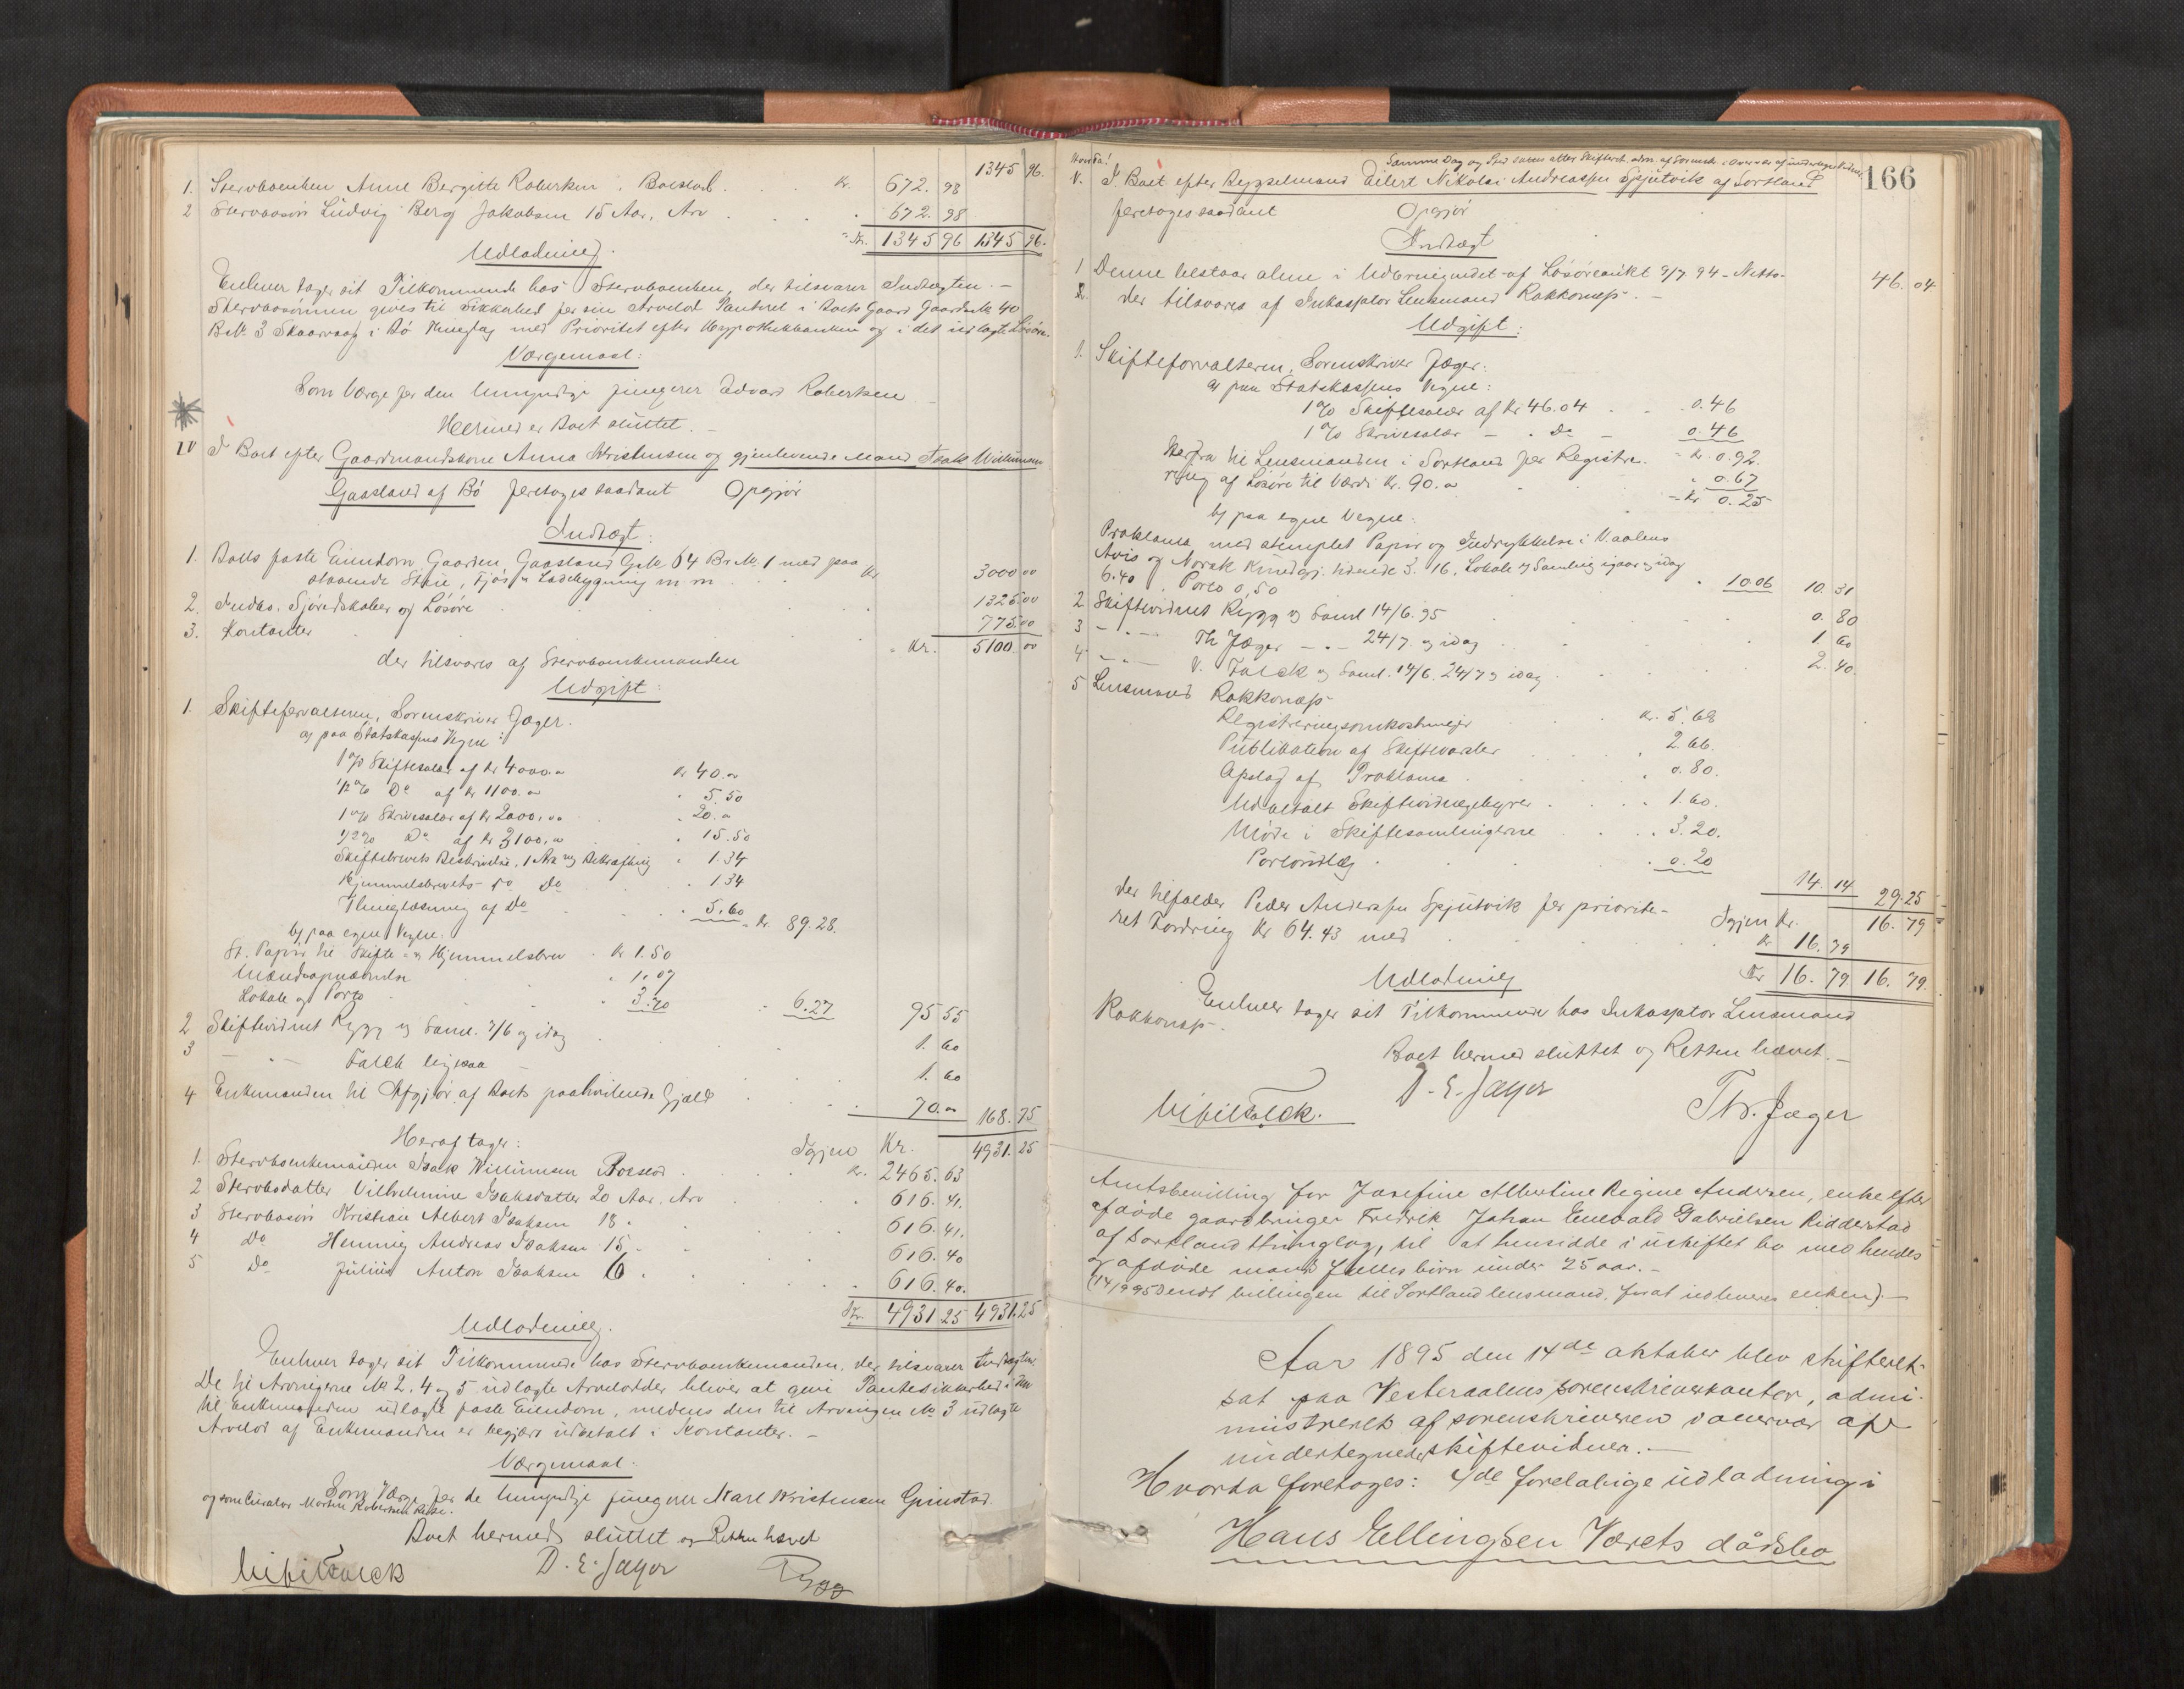 1345 96.
1. Stervboenken Anne Bergitte Robertsen, Boeslod . . . Kr. 672. 98
2 Stervbosøn Ludvig Berg Jakobsen 15 Aar, Arv . . . 672. 98
Kr. 1345 96 1345 96.
Udlodning.
Enhver tager sit Tilkommende hos Stervboenken, der tilsvarer Indtægten. –
Stervbosønnen gives til Sikkerhed for sin Arvelod Panteret i Boets Gaard Gaards No 40
B No 3 Skaarvaag i Bø Thinglag med Prioritet efter Hypothekbanken og i det udlagte Løsøre.
Værgemaal:
Som Værge for den Umyndige fungerer Edvard Robertsen
Hermed er Boet sluttet. –
IV I Boet efter Gaardmandskone Anna Kristensen og gjenlevende Mand Isak Willumsen
Gaasland af Bø foretoges saadant Opgjør
Indtægt:
1. Boets faste Eiendom, Gaarden Gaasland G No 64 Br No 1 med paa
staaende Stue, Fjøs & Ladebygning m m . . Kr 3000 00
2. Indbo, Sjøredskaber og Løsøre . . . 1325 00
3. Kontanter . . . 775. 00
der tilsvares af Stervboenkemanden Kr. 5100. 00
Udgift:
1. Skifteforvalteren, Sorenskriver Jæger.
a) paa Statskassens Vegne:
1 % Skiftesalær af Kr 4000. Kr 40.
1/2 % Do af Kr 1100. 5. 50
1 % Skrivesalær af Kr 2000. 20.
1/2 % Do af Kr 3100. 15. 50
Skiftebrevets Beskrivelse, 1 Ark og Bekræftning 1. 34
Hjemmelsbrevets Do Do 1 34
Thinglæsning af Do 5. 60 Kr. 89. 28.
b) paa egne Vegne.
St. Papir til Skifte- og Hjemmelsbrev Kr 1. 50
Mandsopnævnelse 1. 07
Lokale og Porto 3. 70 6. 27 95 55
2 Skiftevidnet Rygg og Saml. 7/6 og idag 1. 60
3 – " – Falck ligesaa 1. 60
4 Enkemanden til Afgjør af Boets paahvilende Gjæld 70. 168. 75
Igjen Kr. 4931. 25
Heraf tager:
1. Stervboenkemanden Isak Willumsen Boeslod . Kr. 2465. 63
2 Stervbodatter Vilhelmine Isaksdatter 20 Aar, Arv 616. 41.
3 Stervbosøn Kristian Albert Isaksen 18 " 616. 41.
4 Do Henning Andreas Isaksen 15 " 616. 40
5 Do Julius Anton Isaksen 6 " 616. 40.
Kr. 4931 25 4931. 25
Udlodning.
Enhver tager sit Tilkommende hos Stervboenkemanden, der tilsvarer Indtægten
De til Arvingerne No 2, 4 og 5 udlagte Arvelodder bliver at give Pantesikkerhed i den
til Enkemanden udlagte faste Eiendom, medens den til Arvingen No 3 udlagte
Arvelod af Enkemanden er begjært udbetalt i Kontanter. –
Værgemaal.
Som Værge for de Umyndige fungerer Karl Kristensen Grimstad.
og som Curator Morten Robertsen
Boet hermed sluttet og Retten hævet
Falck D. E. Jæger Rygg
166
Samme Dag og Sted sattes atter Skifteret adm. af Sorenskr. i Overvær af undertegnede Vidner
Hvorda!
V. I Boet efter Rygselmand Eilert Nikolai Andreassen Spjutvik af Sortland
foretoges saadant Opgjør
Indtægt
1 Denne bestaar alene i Udbringendet af Løsøreauktion 9/7 94 – Netto – 46. 04
der tilsvares af Inkassator Lensmand Rokkonæs. –
Udgift:
1. Skifteforvalteren, Sorenskriver Jæger:
a) paa Statskassens Vegne:
1 % Skiftesalær af Kr 46. 04 . . 0. 46
1 % Skrivesalær – " Do – 0. 46
Kr. 0. 92.
Herfra til Lensmanden i Sortland for Registre-
ring af Løsøre til Værdi Kr. 90. 0. 67
Kr 0. 25
b) paa egne Vegne.
Proklama med stemplet Papir og Indrykkelse i V.aalens
Avis og Norsk Kundgj. tidende 3. 16, Lokale og Samling igaar og idag
6. 40, Porto 0, 50 10. 06 10. 31
2 Skiftevidnet Rygg og Saml 14/6. 95 0. 80
3 – " – Th Jæger – " – 24/7 og idag 1 60
4 – " – V. Falck og Saml. 14/6. 24/7 og idag 2. 40.
5 Lensmand Rokkonæs
Registreringsomkostninger Kr. 5. 68
Publikation af Skiftevarsler 2. 66.
Opslag af Proklama 0. 80.
Udbetalt Skiftevidnegebyrer 1. 60.
Møde i Skiftesamlingerne 3. 20.
Portoudlæg 0. 20 14. 14 29. 25
Igjen Kr. 16. 79
der tilfalder Peder Andersen Spjutvik for priorite-
ret Fordring Kr 64. 43 med Kr 16. 79
Kr 16. 79 16. 79.
Udlodning
Enhver tager sit Tilkommende hos Inkassator Lensmand
Rokkonæs. –
Boet hermed sluttet og Retten hævet. –
Falck. D. E. Jæger Th. Jæger
Amtsbevilling for Josefine Albertine Regine Andersen, enke efter
afdøde gaardbruger Fredrik Johan Enevald Gabrielsen Ridderstad
af Sortland thinglag, til at hensidde i uskiftet bo med hendes
og afdøde mand fælles børn under 25 aar. –
(14/9 95 sendt bevilingen til Sortland lensmand, forat udleveres enken). –
Aar 1895 den 14de oktober blev skifteret
sat paa Vesteraalens sorenskriverkontor, admi-
nistreret af sorenskriveren i overvær af
undertegnede skiftevidner. –
Hvorda foretoges: 4de foreløbige udlodning i
Hans Ellingsen Værets dødsbo